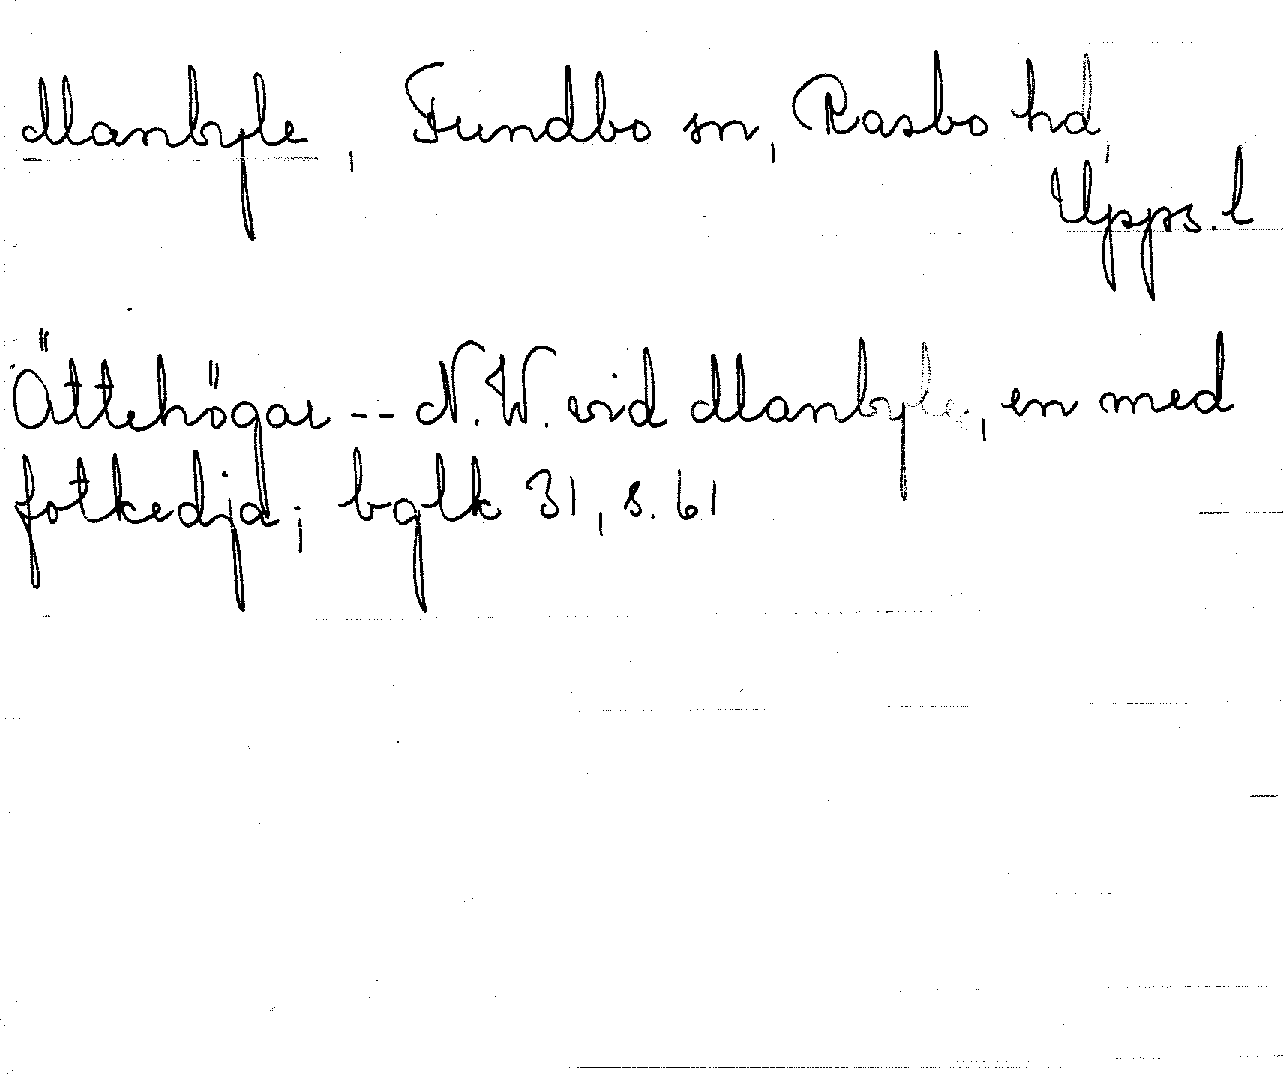 Manbyle, Fundbo sn, Rasbo hd,
Upps. l
Ättehögar -- N.W. vid Manbyle, en med
fotkedja; bglk 31, s. 61